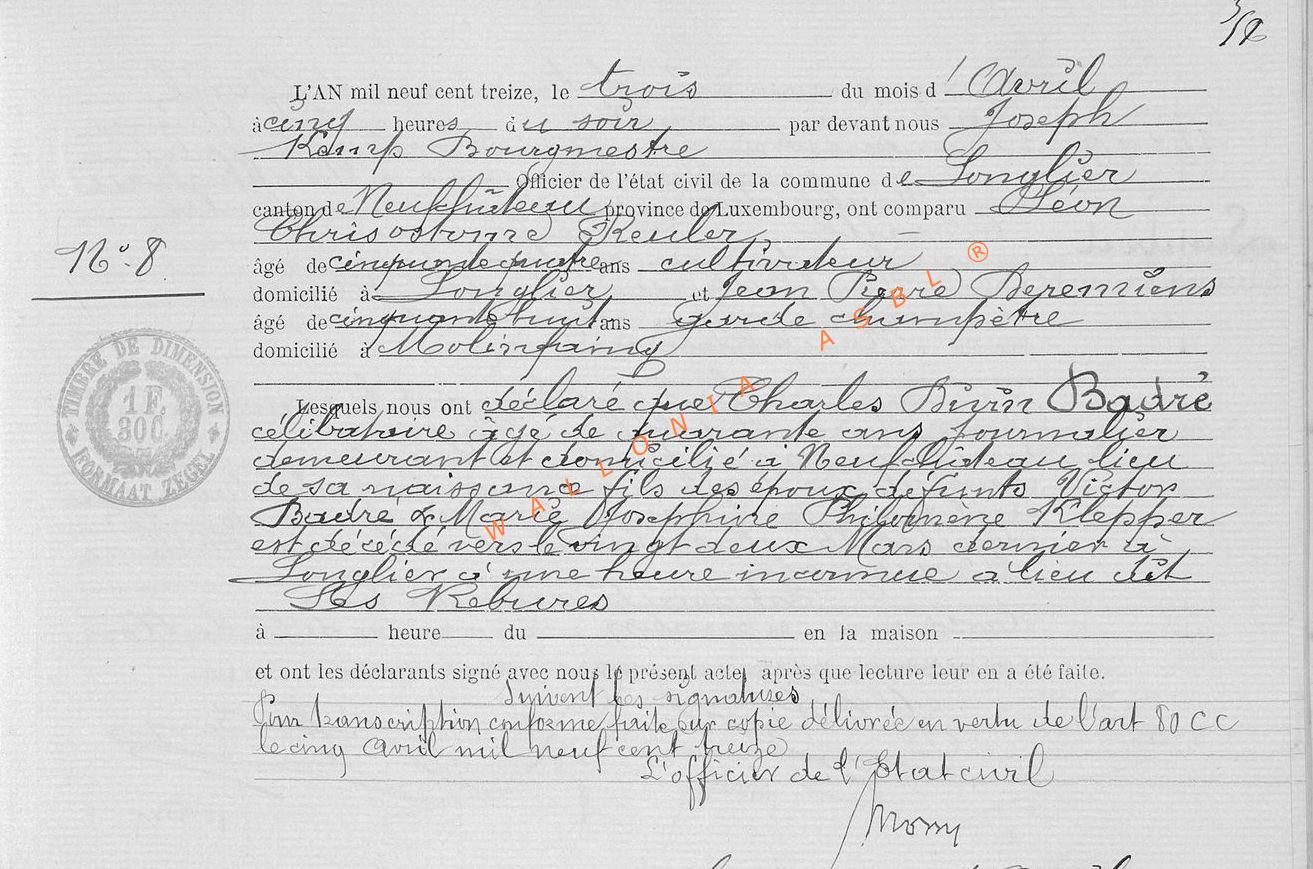 L'AN mil neuf cent treize, le trois du mois d'Avril
à cinq heures du soir par devant nous Joseph
Kemp Bourgmestre
Officier de l'état civil de la commune de Longlier
canton de Neufchâteau province de Luxembourg, ont comparu Léon
Chrisostome Keuler
N° 8
âgé de cinquante quatre ans cultivateur
domicilié à Longlier et Jean Pierre
âgé de cinquante huit ans garde champêtre
domicilié à Molinfaing
TIMBRE DE DIMENSION
1 F.
30 C.
FORMAAT ZEGEL
Lesquels nous ont déclaré que Charles Badré
célibataire âgé de quarante ans journalier
demeurant et domicilié à Neufchâteau lieu
de sa naissance fils des époux défunts Victor
Badré & Marie Josephine Philomène Klepper
est décédé vers le vingt deux Mars dernier à
Longlier à une heure inconnue a lieu dit
Les
à heure du en la maison
et ont les déclarants signé avec nous le présent acte, après que lecture leur en a été faite.
Suivent les signatures
Pour transcription conforme faite sur copie délivrée en vertu de l'art 80 CC
le cinq Avril mil neuf cent treize
L'officier de l'Etat civil
WALLONIA ASBL ®